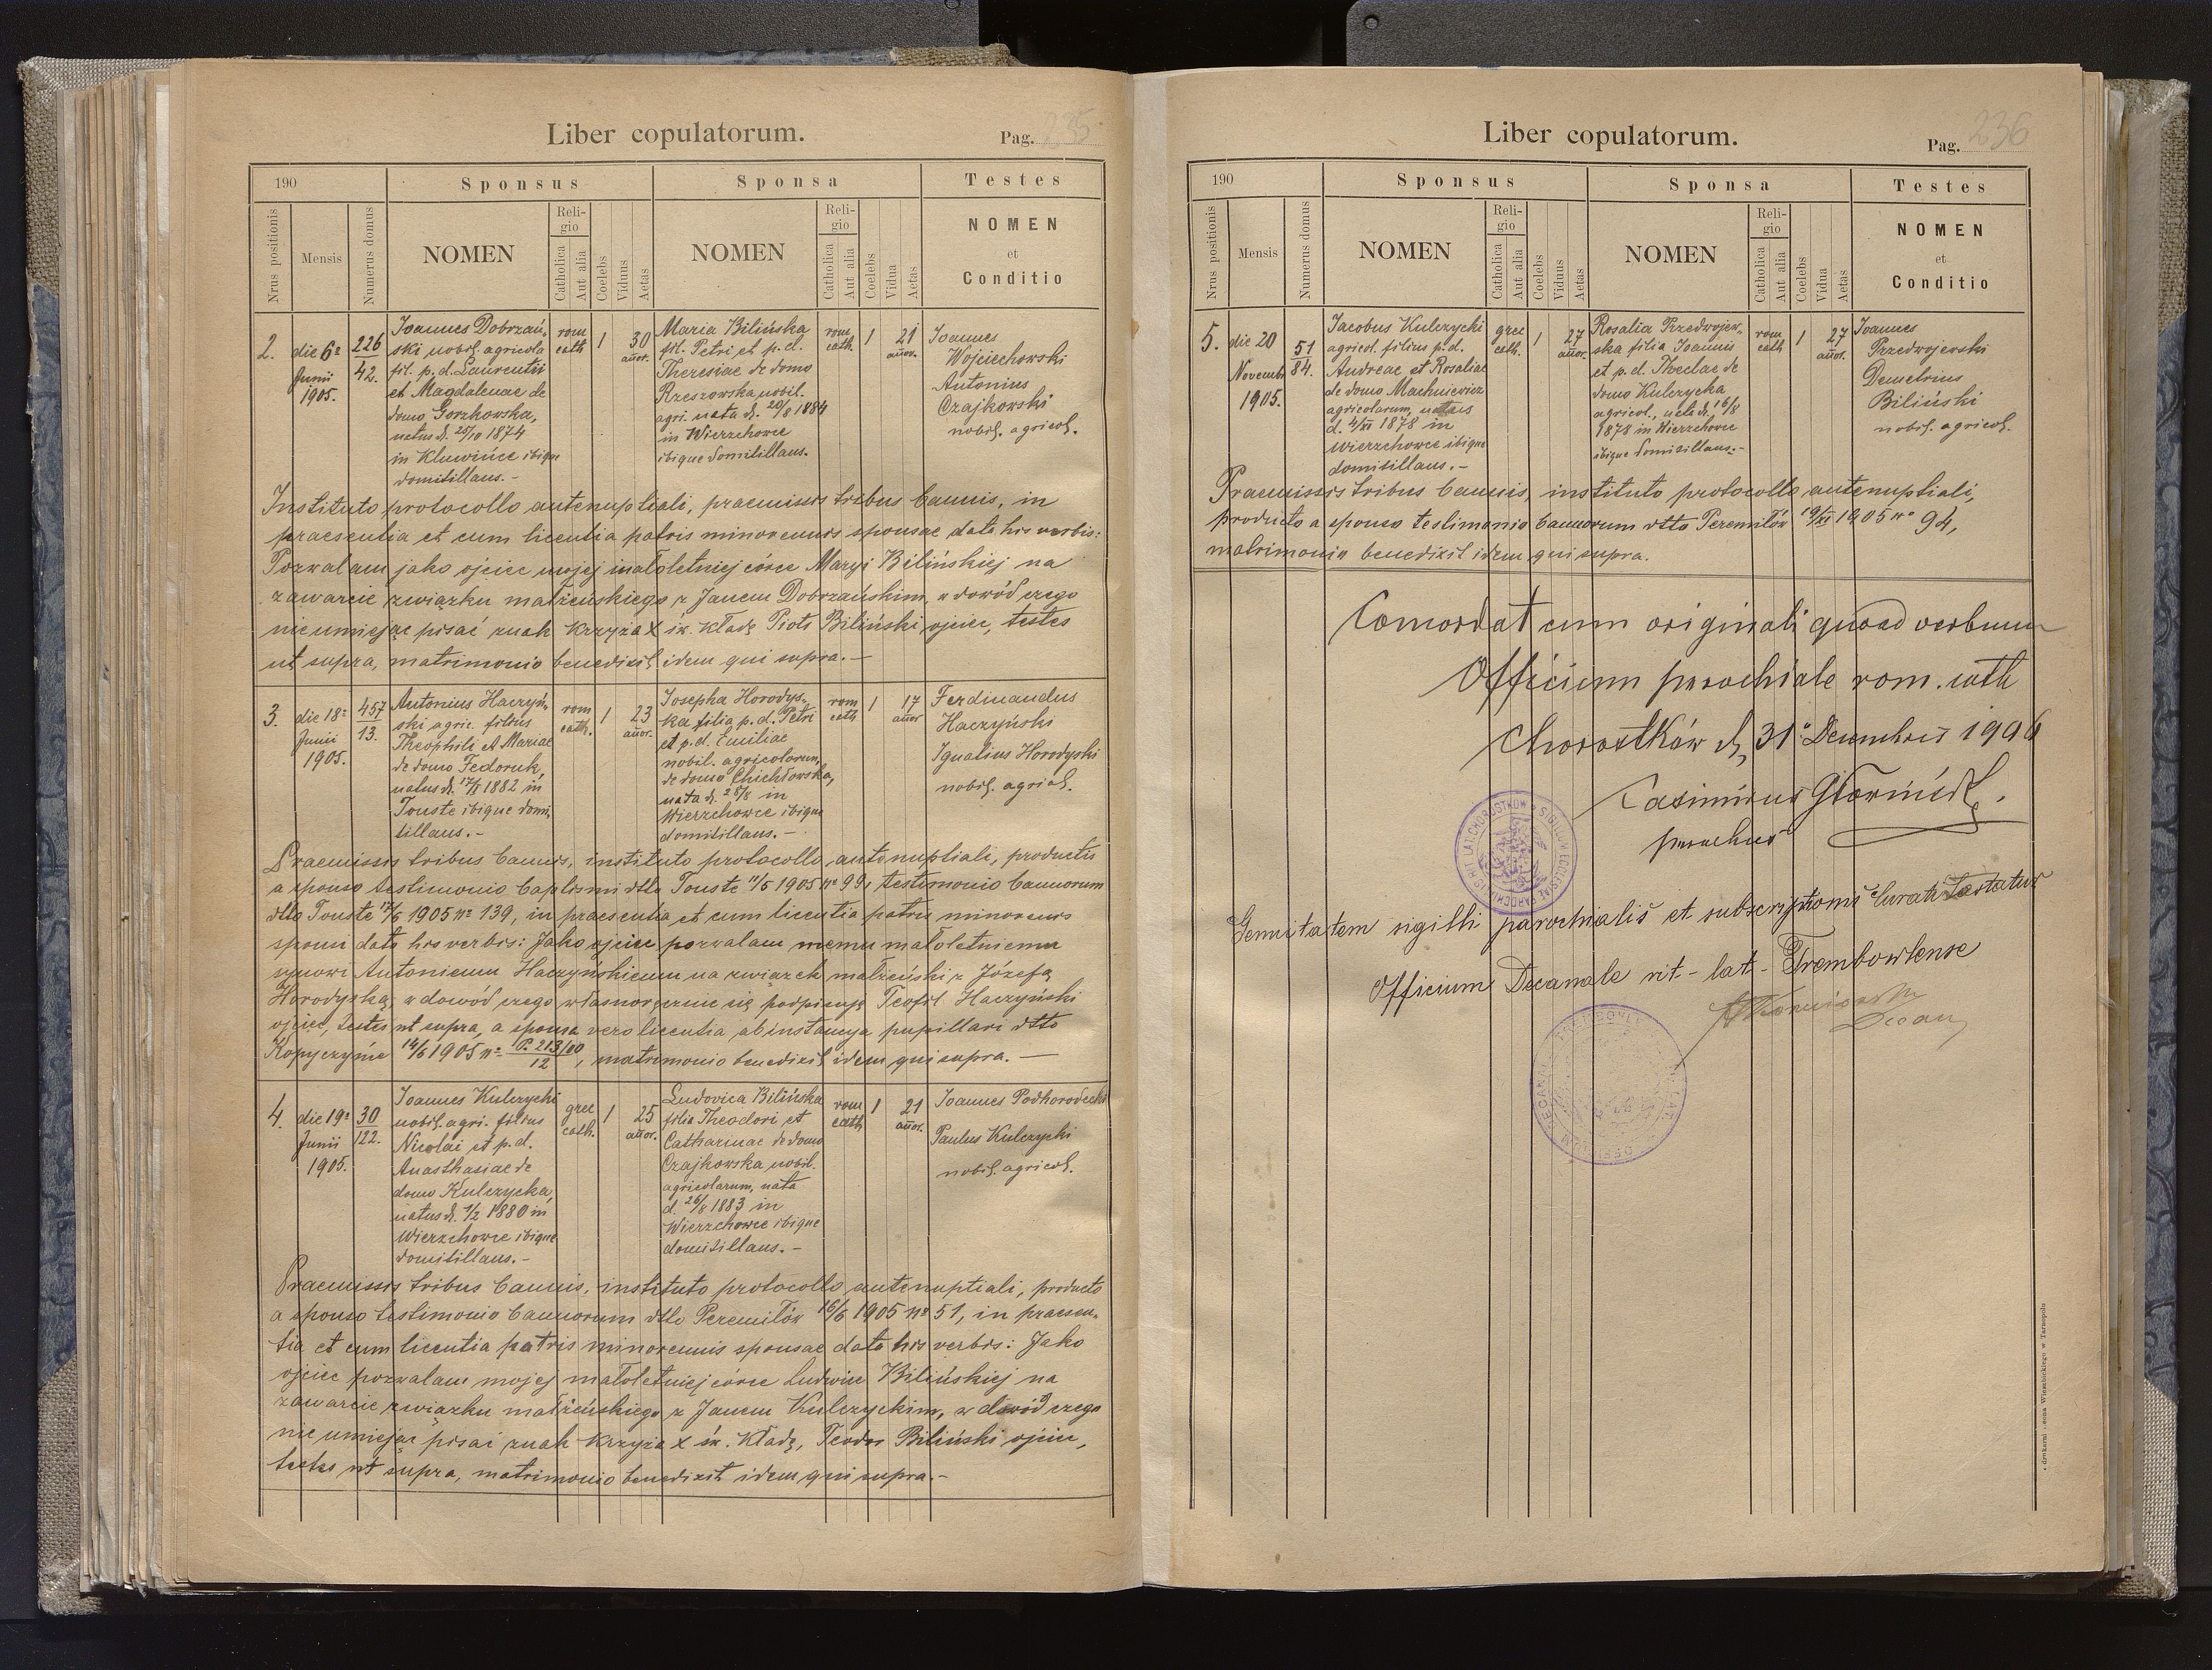 Liber copulatorum.
Pag. 235
190
Sponsus
Sponsa
Testes
Nrus positionis
Mensis
Numerus domus
NOMEN
Religio
Catholica
Aut alia
Coelebs
Viduus
Aetas
NOMEN
Religio
Catholica
Aut alia
Coelebs
Vidua
Aetas
NOMEN
et
Conditio
2.
die 6ª
Junii
1905.
226
42.
Joannes Dobrzań-
ski nobil. agricola
fil. p. d. Laurentii
et Magdalenae de
domo Gorzkowska,
natus d. 25/10 1874
in Kluwińce ibique
domicillans.-
rom
cath
1
30
annor.
Maria Bilińska
fil. Petri et p. d.
Theresiae de domo
Rzeszowska, nobil.
agri. nata d. 20/8 1884
in Wierzchowce
ibique domicillans.
rom
cath.
1
21
annor.
Joannes
Wojciechowski
Antonius
Czajkowski
nobil. agricol.
Instituto protocollo antenuptiali, praemissis tribus bannis, in
praesentia et cum licentia patris minorennis sponsae data his verbis:
Pozwalam jako ojciec mojej małoletniej córce Maryi Bilińskiej na
zawarcie związku małżeńskiego z Janem Dobrzańskim, w dowód czego
nie umiejąc pisać znak krzyża X św. kładę Piotr Biliński ojciec, testes
ut supra, matrimonio benedixit idem qui supra.—
3.
die 18ª
Junii
1905.
457
13.
Antonius Haczyń-
ski agric. filius
Theophili et Mariae
de domo Fedoruk,
natus d. 17/1 1882 in
Touste ibique domi-
cillans.-
rom
cath.
1
23
annor.
Josepha Horodys-
ka filia p. d. Petri
et p. d. Emiliae
nobil. agricolorum,
de domo Chichłowska,
nata d. 25/8 in
Wierzchowce ibique
domicillans.-
rom
cath
1
17
annor
Ferdinandus
Haczyński
Ignatius Horodyski
nobil. agricol.
Praemissis tribus bannis, instituto protocollo antenuptiali, productis
a sponso testimonio baptismi dtto Touste 11/5 1905 nº 99, testimonio bannorum
dtto Touste 17/6 1905 nº 139, in praesentia et cum licentia patris minorennis
sponsi data his verbis: Jako ojciec pozwalam memu małoletniemu
synowi Antoniemu Haczyńskiemu na związek małżeński z Józefą
Horodyską, w dowód czego własnoręcznie się podpisuję Teofil Haczyński
ojciec, testes ut supra, a sponsa vero licentia ab instancya pupillari dtto
Kopyczyńce 14/6 1905 nº P. 213/00 12, matrimonio benedixit idem qui supra.—
4.
die 19ª
Junii
1905.
30
122.
Joannes Kulczycki
nobil. agri. filius
Nicolai et p. d.
Anasthasiae de
domo Kulczycka,
natus d. 1/2 1880 in
Wierzchowce ibique
domicillans.-
grec
cath.
1
25
annor.
Ludovica Bilińska
filia Theodori et
Catharinae de domo
Czajkowska, nobil.
agricolarum, nata
d. 26/8 1883 in
Wierzchowce ibique
domicillans.-
rom
cath
1
21
annor.
Joannes Podhorodecki
Paulus Kulczycki
nobil. agricol.
Praemissis tribus bannis, instituto protocollo antenuptiali, producto
a sponso testimonio bannorum dtto Peremiłów 16/6 1905 nº 51, in praesen-
tia et cum licentia patris minorennis sponsae data his verbis: Jako
ojciec pozwalam mojej małoletniej córce Ludwice Bilińskiej na
zawarcie związku małżeńskiego z Janem Kulczyckim, w dowód czego
nie umiejąc pisać znak krzyża X św. kładę, Teodor Biliński ojciec,
testes ut supra, matrimonio benedixit idem qui supra.-
Liber copulatorum.
Pag. 236
190
Sponsus
Sponsa
Testes
Nrus positionis
Mensis
Numerus domus
NOMEN
Religio
Catholica
Aut alia
Coelebs
Viduus
Aetas
NOMEN
Religio
Catholica
Aut alia
Coelebs
Vidua
Aetas
NOMEN
et
Conditio
5.
die 20
Novembr
1905.
51
84.
Jacobus Kulczycki
agricol. filius p. d.
Andreae et Rosaliae
de domo Machniewicz
agricolarum, natus
d. 4/XI 1878 in
Wierzchowce ibique
domicillans.-
grec
cath.
1
27
annor.
Rosalia Przedwojew-
ska filia Joannis
et p. d. Theclae de
domo Kulczycka
agricol., nata d. 16/8
1878 in Wierzchowce
ibique domicillans.-
rom
cath
1
27
annor.
Joannes
Przedwojewski
Demetrius
Biliński
nobil. agricol.
Praemissis tribus bannis, instituto protocollo antenuptiali,
producto a sponso testimonio bannorum dtto Peremiłów 19/XI 1905 nº 94,
matrimonio benedixit idem qui supra.
Concordat cum originali quoad verbum
Officium parochiale rom. cath
Chorostków d. 31º Decembris 1906
Casimirus
parochus
Genuitatem sigilli parochialis et subscriptionis Curati testatur
Officium Decanale rit-lat-Trembowlense
Decan
z drukarni Leona Wierzbickiego w Tarnopolu